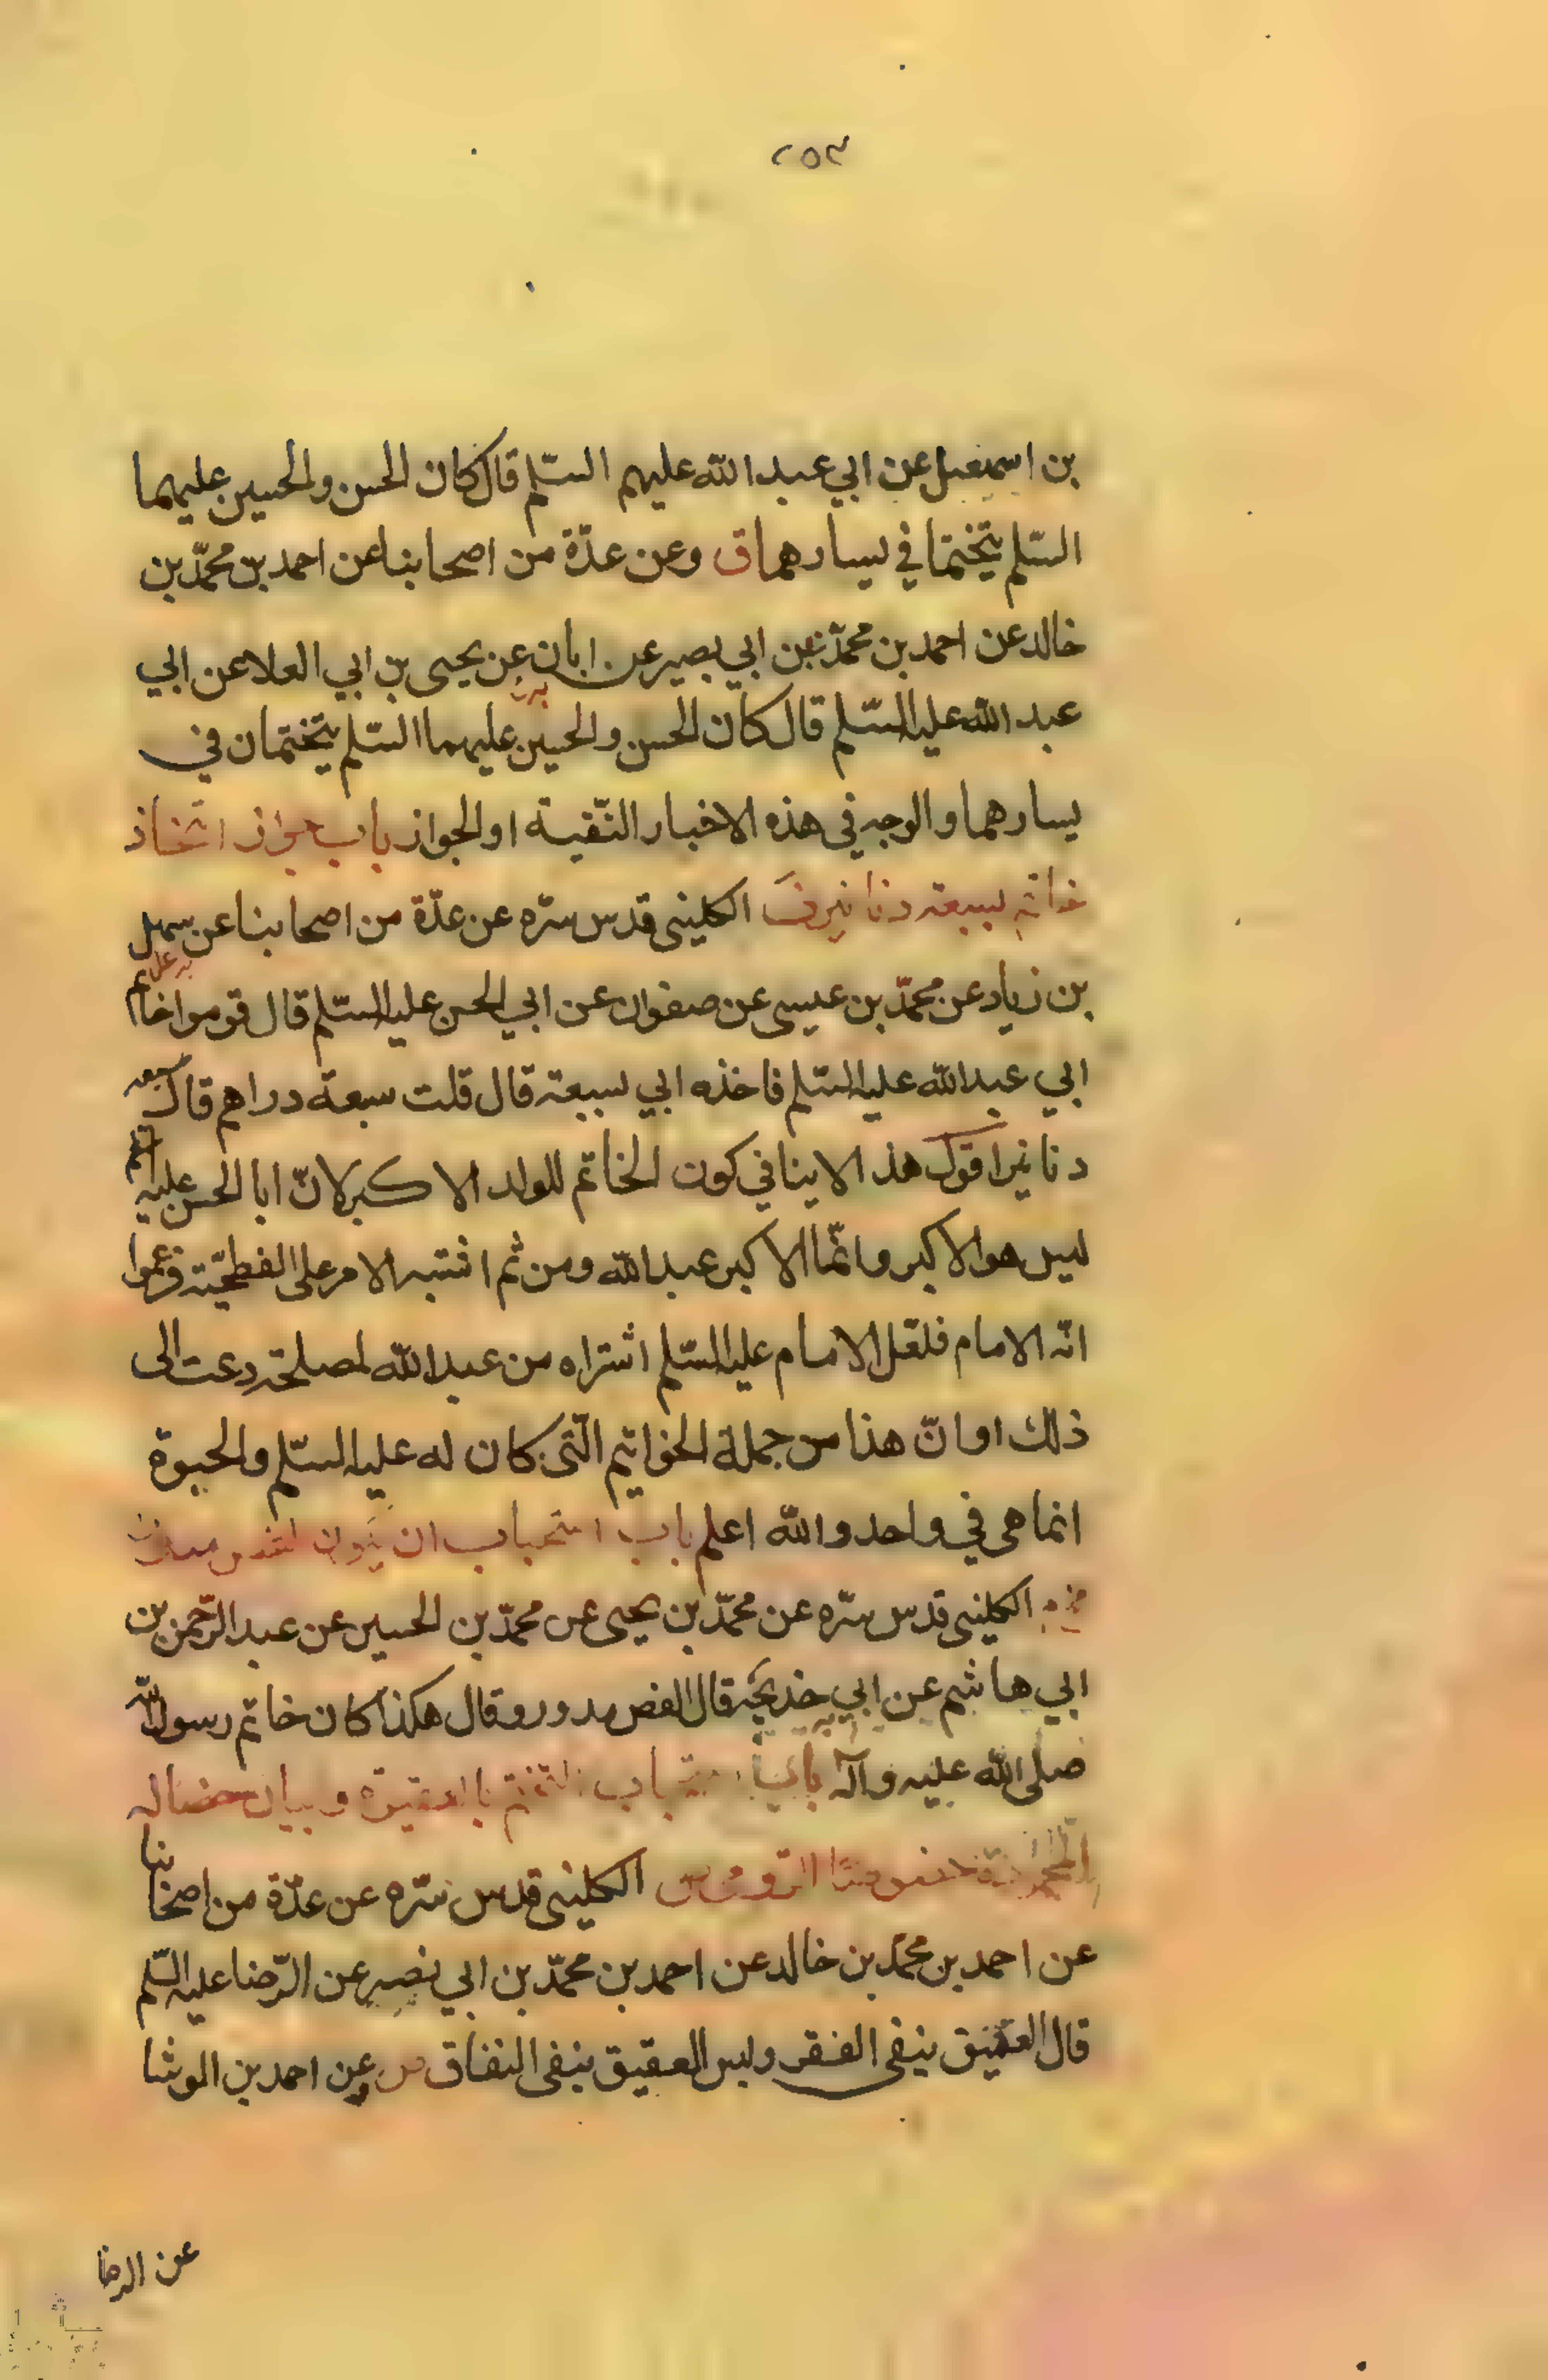 ٢٥٣
بن اسمعيل عن ابي عبد الله عليهم السّلم قال كان الحسن والحسين عليهما
السّلم يتختما في يسارهما ق وعن عدّة من اصحابنا عن احمد بن محمّد بن
خالد عن احمد بن محمّد بن ابي بصير عن ابان عن يحيى بن ابي العلا عن ابي
عبد الله عليه السّلم قال كان الحسن والحسين عليهما السّلم يتختمان في
يسارهما والوجه في هذه الاخبار التّقية او الجواز باب جواز اتخاذ
خاتم بسبعة دنانير ق الكليني قدس سرّه عن عدّة من اصحابنا عن سهل
بن زياد عن محمّد بن عيسى عن صفوان عن ابي الحسن عليه السّلم قال قوموا خاتم
ابي عبد الله عليه السّلم فاخذه ابي بسبعة قال قلت سبعة دراهم قال سبعة
دنانير اقول هذا لا ينافي كون الخاتم للولد الاكبر لانّ ابا الحسن عليه السّلم
ليس هو الاكبر وانّما الاكبر عبد الله ومن ثم اشتبه الامر على الفطحيّة فزعموا
انّه الامام فلعّل الامام عليه السّلم اشتراه من عبد الله لمصلحة دعت الى
ذلك او انّ هذا من جملة الخواتيم الّتى كان له عليه السّلم والحبوة
انما هى في واحد والله اعلم باب استحباب ان يكون الفص مدورا
الكليني قدس سرّه عن محمّد بن يحيى عن محمّد بن الحسين عن عبد الرّحمن بن
ابي هاشم عن ابي خديجة قال الفص مدور وقال هكذا كان خاتم رسول الله
صلى الله عليه وآله باب استحباب التختم بالعقيق وبيان خصاله
الكليني قدس سرّه عن عدّة من اصحابنا
عن احمد بن محمّد بن خالد عن احمد بن محمّد بن ابي نصير عن الرّضا عليه السّلم
قال العقيق ينفى الفقر ولبس العقيق ينفى النفاق وعن احمد بن الوشا
عن الرضا